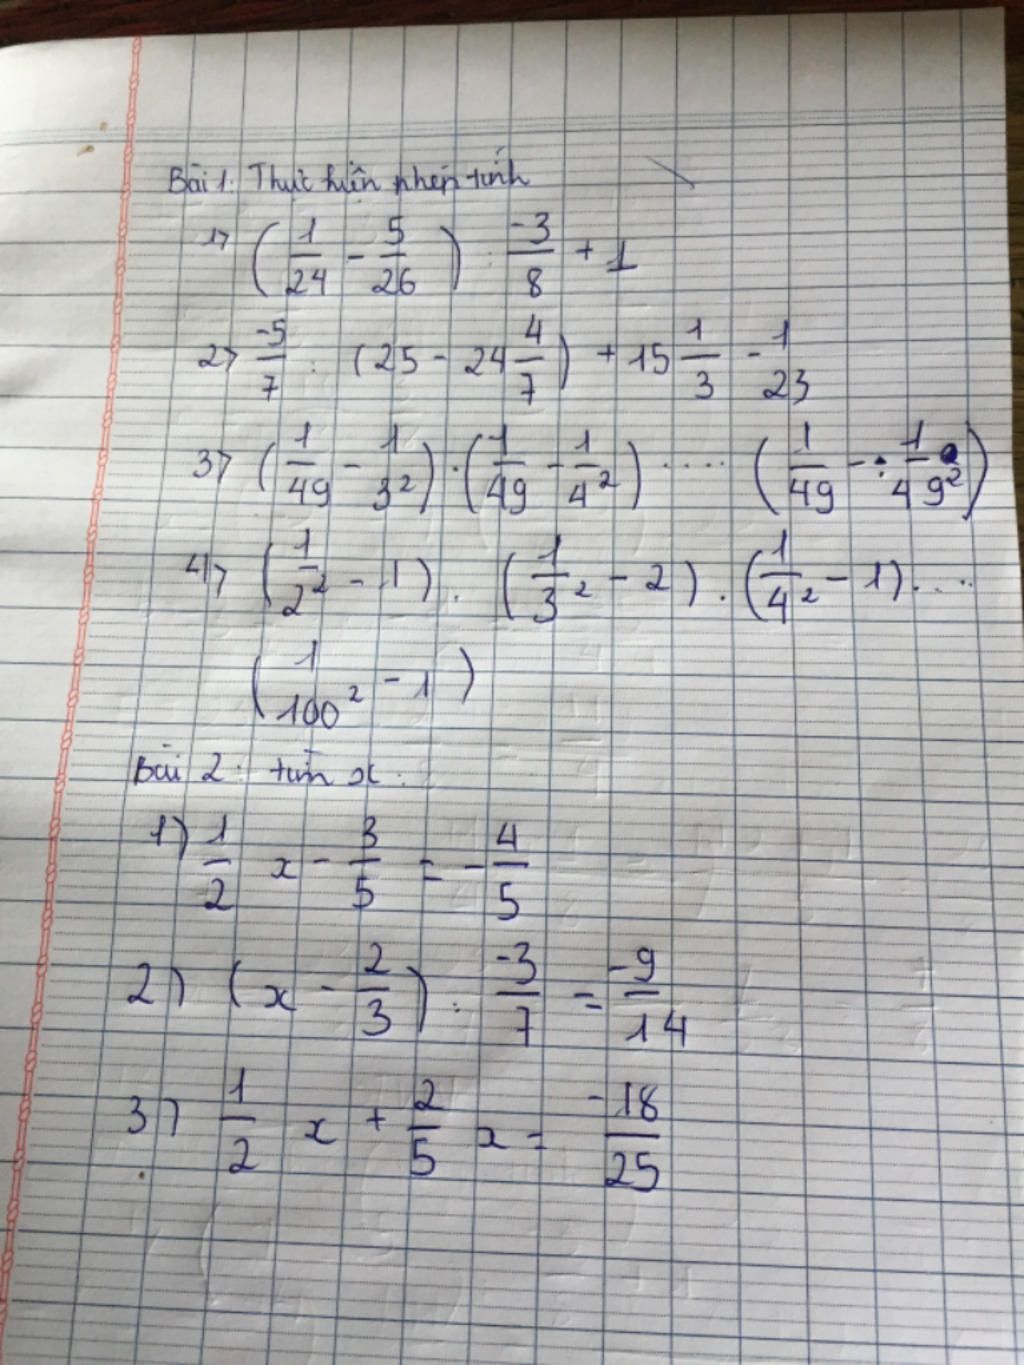 Bài 1: Thực hiện phép tính
1> (1/24 - 5/26) : -3/8 + 1
2> -5/7 : (25 - 24 4/7) + 15 1/3 - 1/23
3> (1/49 - 1/3²) . (1/49 - 1/4²) ..... (1/49 - 1/49²)
4> (1/2² - 1) . (1/3² - 2) . (1/4² - 1) .....
(1/100² - 1)
Bài 2: tìm x:
1) 1/2 x - 3/5 = - 4/5
2) (x - 2/3) : -3/7 = -9/14
3) 1/2 x + 2/5 x = -18/25